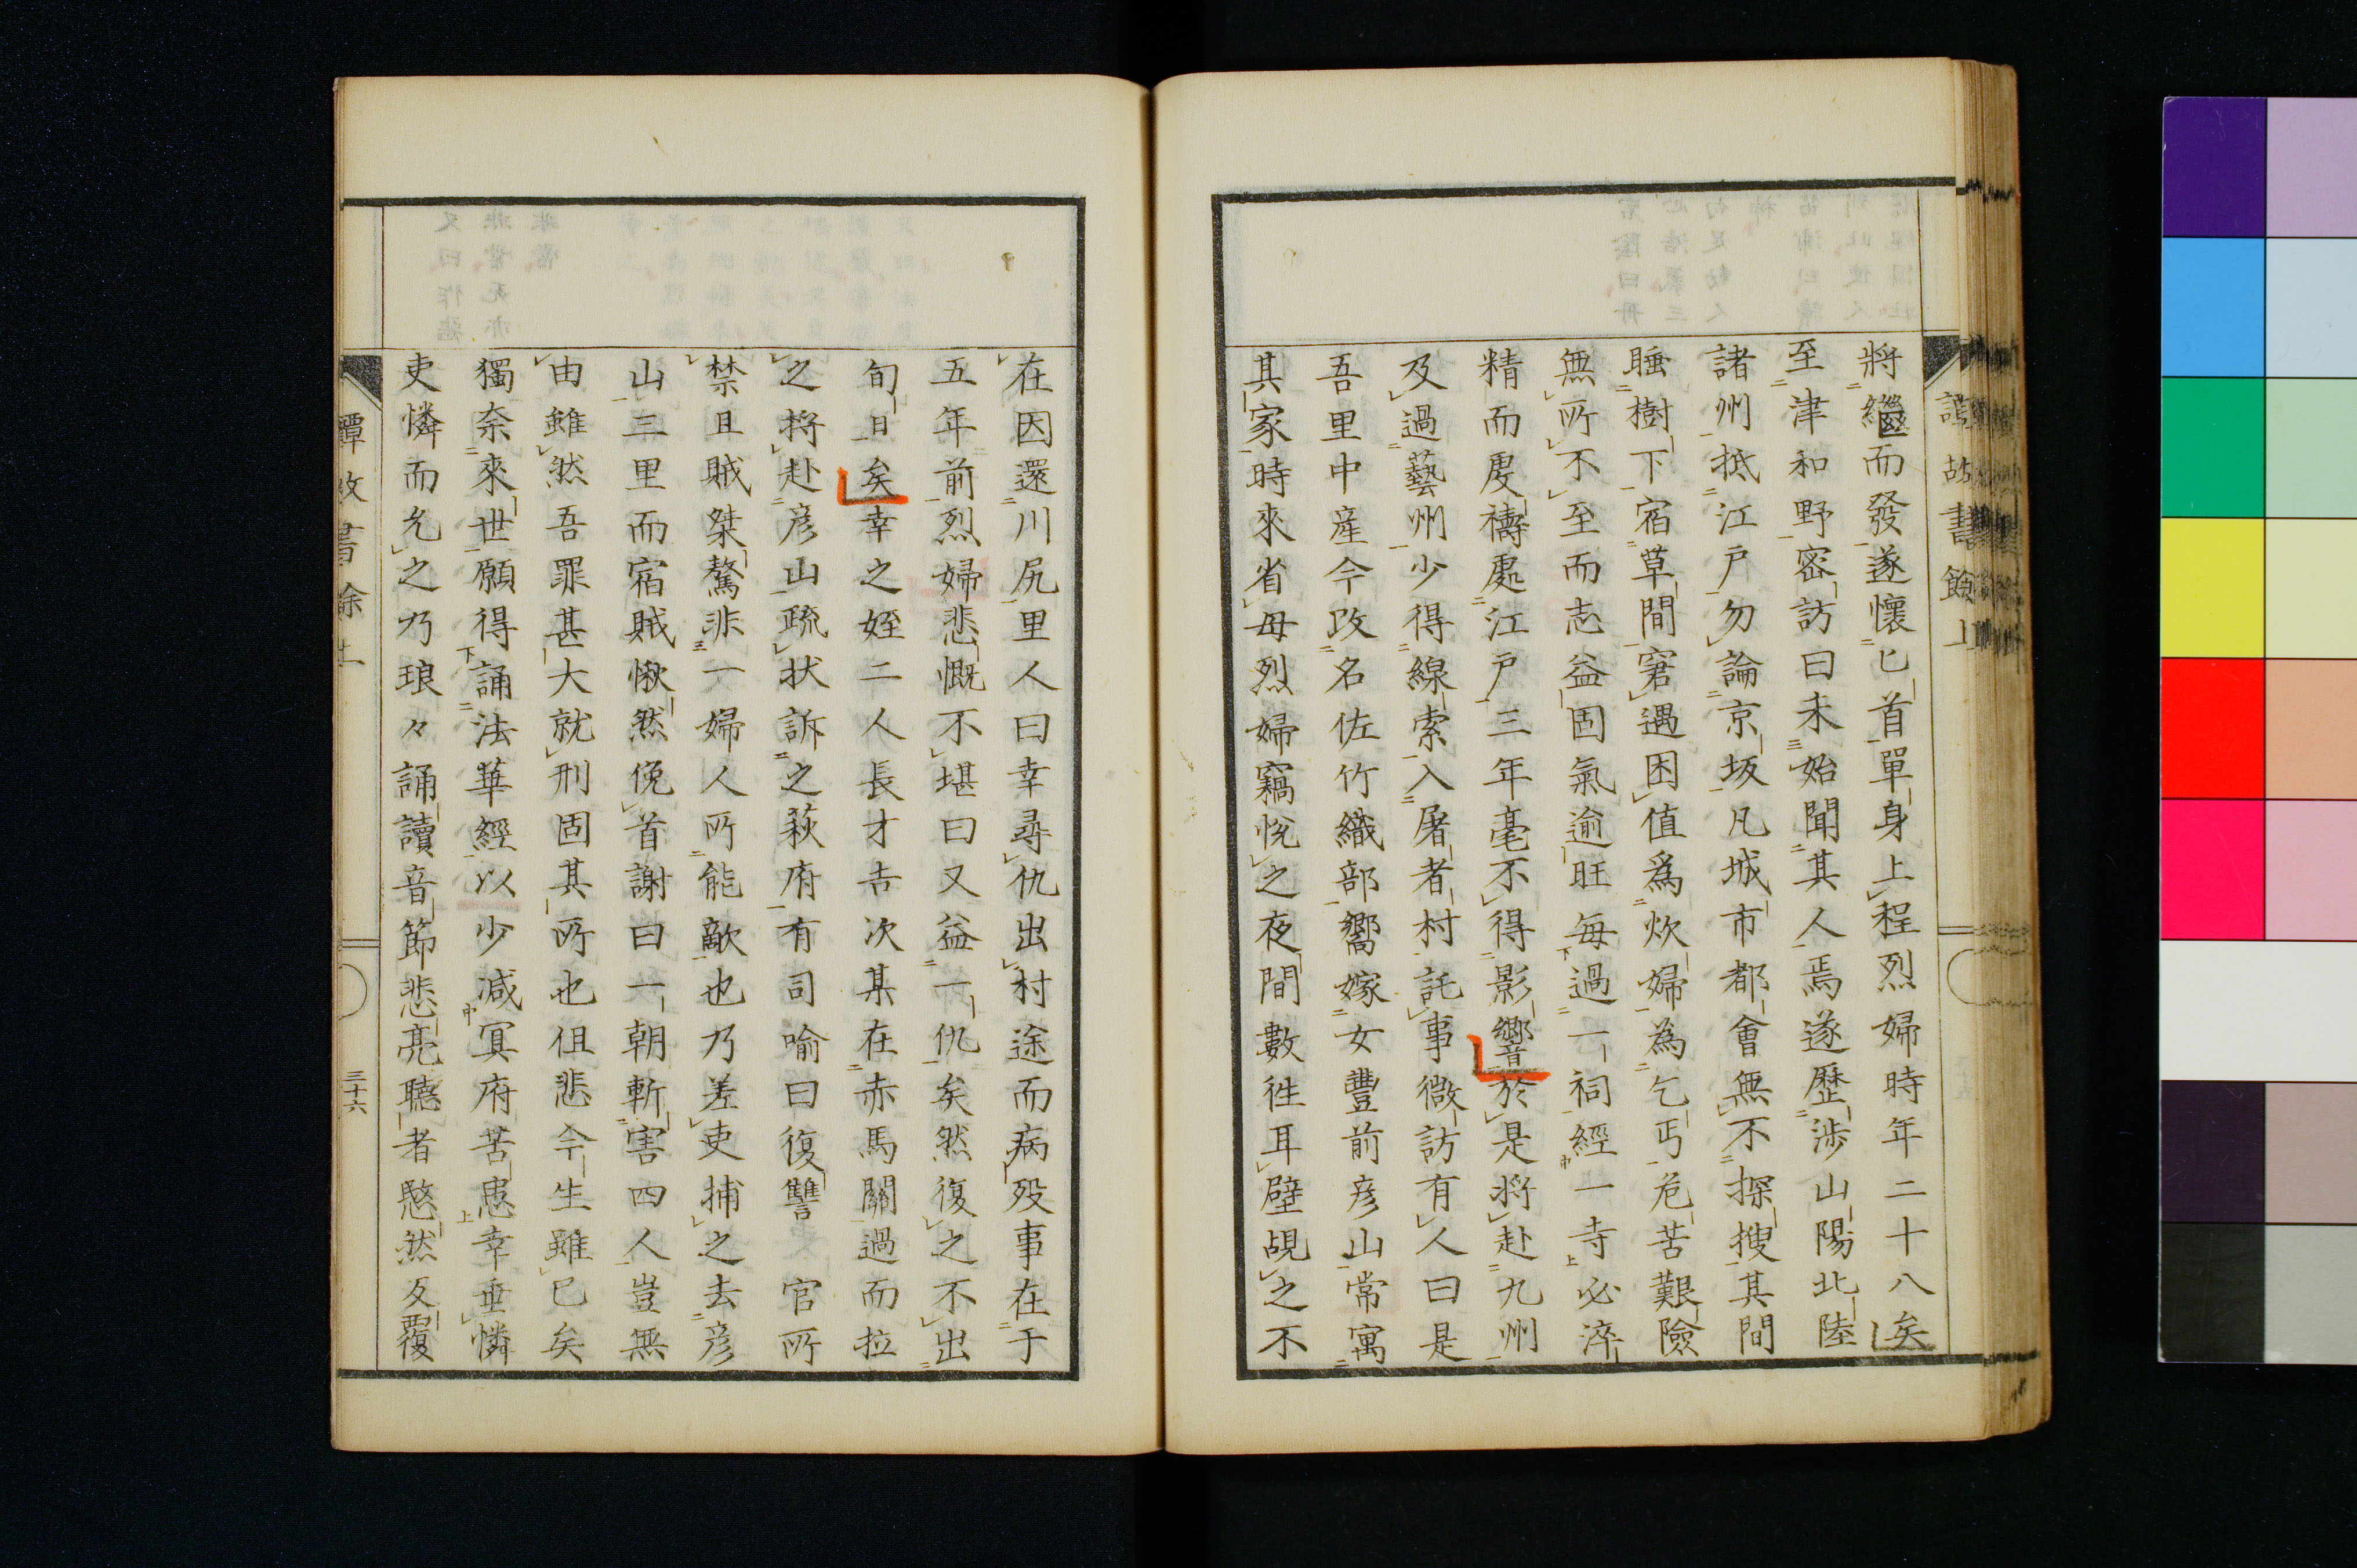 將繼而發遂懷匕首單身上程烈婦時年二十八矣
至津和野密訪曰未始聞其人焉遂歷渉山陽北陸
諸州抵江戸勿論京坂凡城市都會無不探搜其間
睡樹下宿草間窘遇困値爲炊婦為乞丐危苦艱險
無所不至而志益固氣逾旺毎過一祠經一寺必淬
精而虔禱處江戸三年毫不得影響於是將赴九州
及過藝州少得線索入屠者村託事微訪有人曰是
吾里中産今改名佐竹織部嚮嫁女豐前彦山常寓
其家時來省母烈婦竊悅之夜間數徃耳壁覘之不
在因還川尻里人曰幸尋仇出村途而病歿事在于
五年前烈婦悲慨不堪曰又益一仇矣然復之不出
旬日矣幸之姪二人長才吉次某在赤馬關過而拉
之将赴彦山疏状訴之萩府有司喻曰復讐官所
禁且賊桀驁非一婦人所能敵也乃差吏捕之去彦
山三里而宿賊愀然俛首謝曰一朝斬害四人豈無
由雖然吾罪甚大就刑固其所也但悲今生雖已矣
獨奈來世願得誦法華經以少減冥府苦患幸垂憐
吏憐而允之乃琅々誦讀音節悲亮聽者愍然反覆
三十六